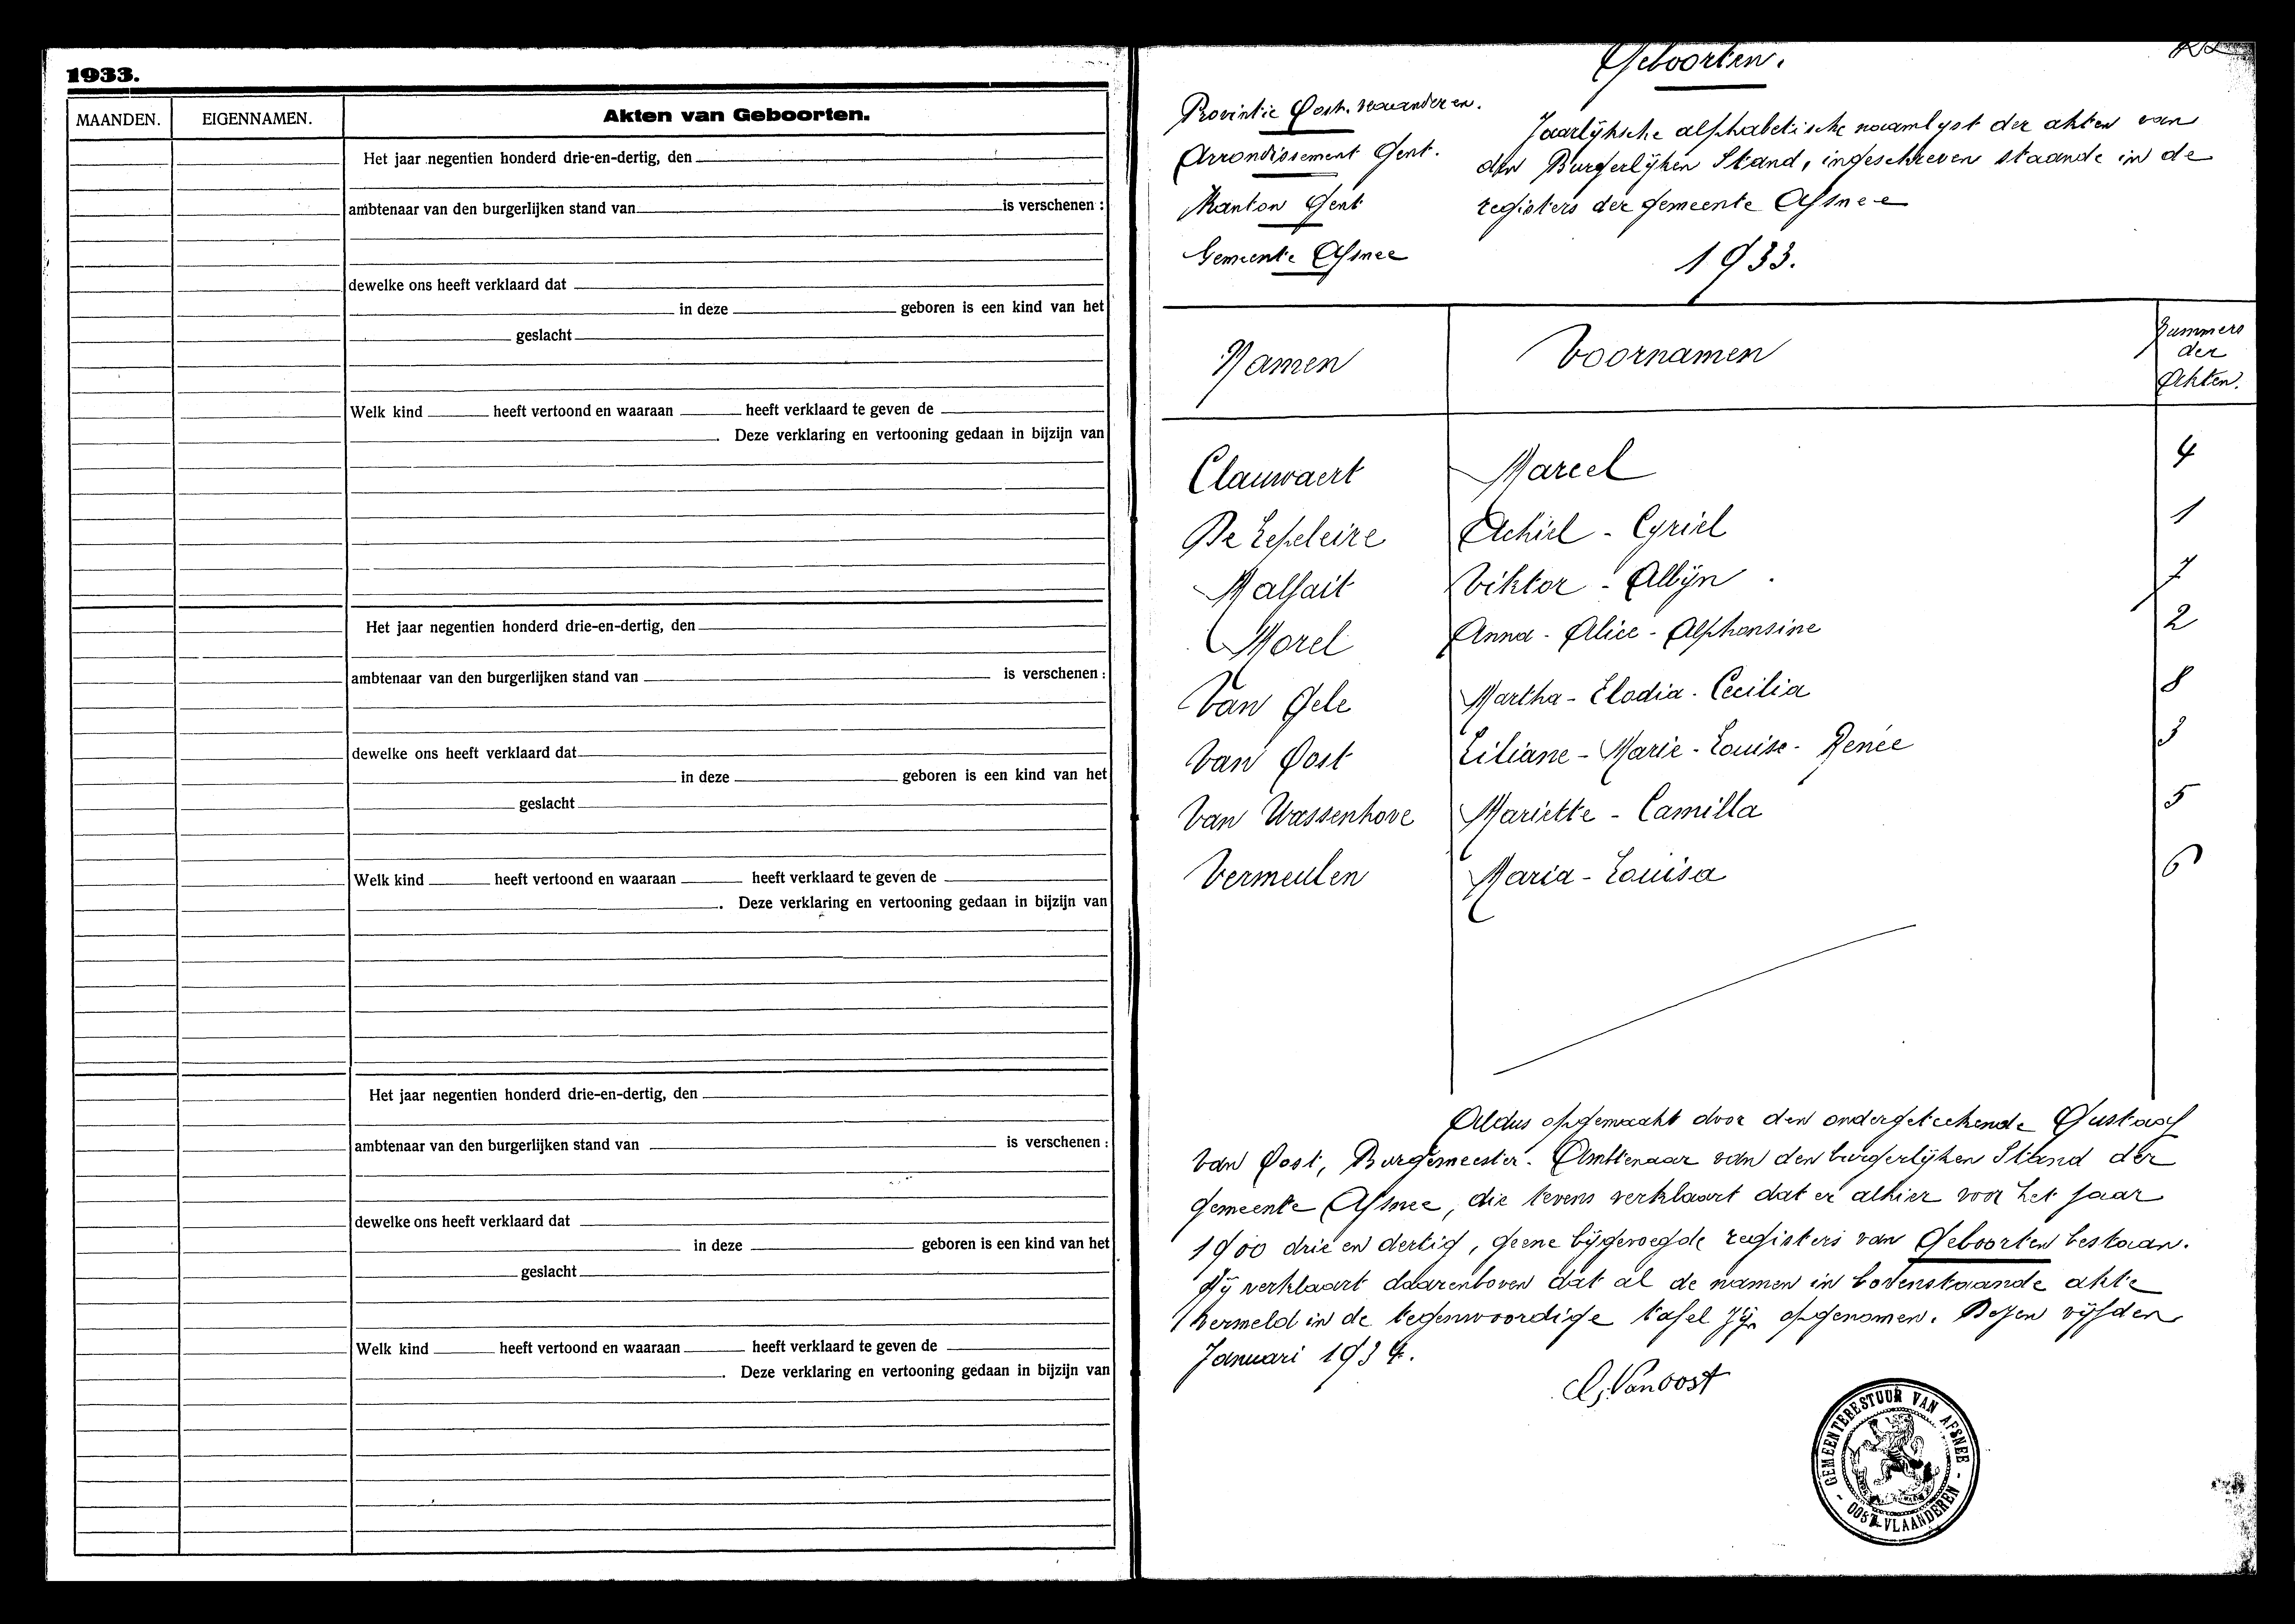 1933.
MAANDEN. EIGENNAMEN. Akten van Geboorten.
Het jaar negentien honderd drie-en-dertig, den
ambtenaar van den burgerlijken stand van is verschenen :
dewelke ons heeft verklaard dat
in deze geboren is een kind van het
geslacht
Welk kind heeft vertoond en waaraan heeft verklaard te geven de
. Deze verklaring en vertooning gedaan in bijzijn van
Het jaar negentien honderd drie-en-dertig, den
ambtenaar van den burgerlijken stand van is verschenen :
dewelke ons heeft verklaard dat
in deze geboren is een kind van het
geslacht
Welk kind heeft vertoond en waaraan heeft verklaard te geven de
. Deze verklaring en vertooning gedaan in bijzijn van
Het jaar negentien honderd drie-en-dertig, den
ambtenaar van den burgerlijken stand van is verschenen :
dewelke ons heeft verklaard dat
in deze geboren is een kind van het
geslacht
Welk kind heeft vertoond en waaraan heeft verklaard te geven de
. Deze verklaring en vertooning gedaan in bijzijn van
Geboorten.
Provintie Oost. vlaanderen.
Arrondissement Gent.
Kanton Gent
Gemeente Afsnee
Jaarlijksche alphabetische naamlyst der akten van
den Burgerlijken Stand, ingeschreven staande in de
registers der gemeente Afsnee
1933.
Namen Voornamen Nummers
der
Akten.
Clauwaert Marcel 4
De Lepeleire Achiel - Cyriel 1
Malfait Viktor - Albijn 7
Morel Anna - Alice - Alphonsine 2
Van Gele Martha - Elodia - Cecilia 8
Van Oost Liliane - Marie - Louise - Renée 3
Van Wassenhove Mariette - Camilla 5
Vermeulen Maria - Louisa 6
Aldus opgemaakt door den ondergeteekende Gustaaf
Van Oost, Burgemeester. Ambtenaar van den burgerlijken Stand der
gemeente Afsnee, die tevens verklaart dat er alhier voor het jaar
1900 drie en dertig, geene bijgevoegde registers van Geboorten bestaan.
Hij verklaart daarenboven dat al de namen in bovenstaande akte
vermeld in de tegenwoordige tafel zijn opgenomen. Dezen vijfden
Januari 1934.
G. Van Oost
GEMEENTEBESTUUR VAN AFSNEE
- OOST-VLAANDEREN -